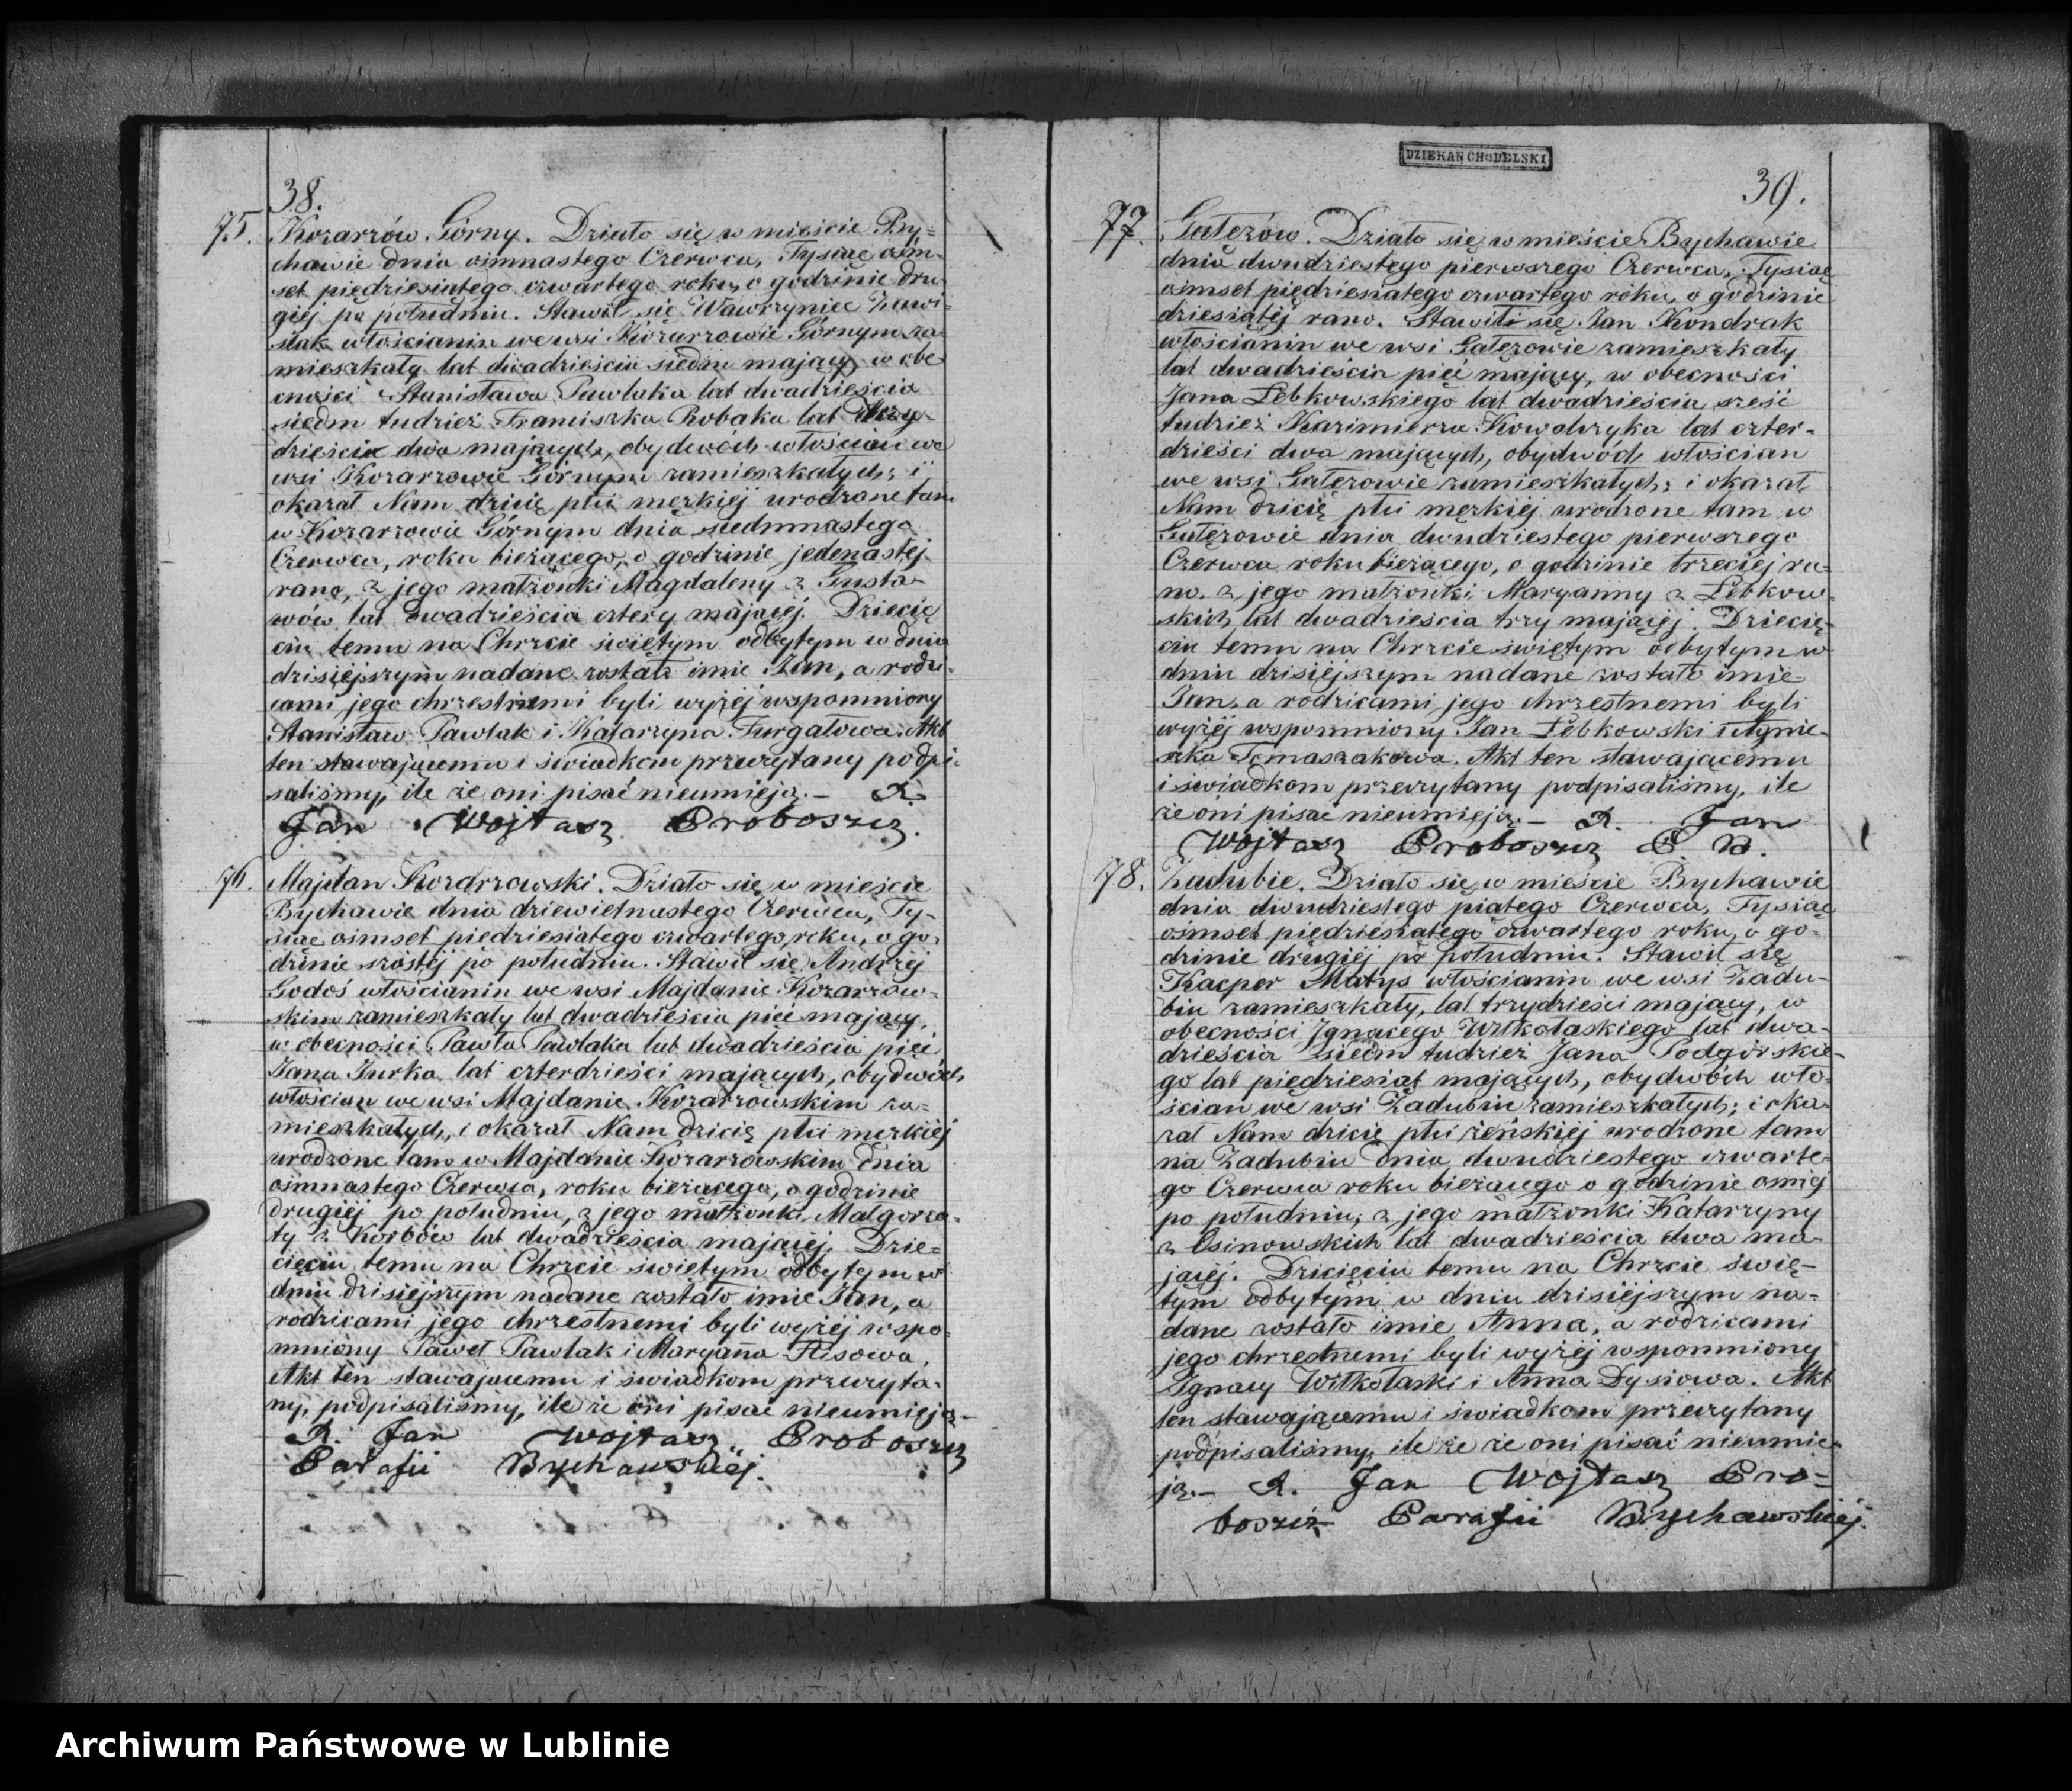 38.
75. Kozarzów Górny. Działo się w mieście By=
chawie dnia ośmnastego Czerwca, Tysiąc ośm-
set piędziesiątego czwartego roku, o godzinie dru-
giéj po południu. Stawił się Wawrzyniec Zawi-
ślak włościanin we wsi Kozarzowie Górnym za-
mieszkały lat dwadzieścia siedm mający, w obe-
cności Stanisława Pawlaka lat dwadzieścia
siedm tudzież Franciszka Robaka lat trzy-
dzieście dwa mających, obydwóch włościan we
wsi Kozarzowie Górnym zamieszkałych; i
okazał Nam dzicię płci męzkiéj urodzone tam
w Kozarzowie Górnym dnia siedmnastego
Czerwca, roku bieżącego, o godzinie jedenastéj
rano, z jego małżonki Magdaleny z Gusta-
wów lat dwadzieścia cztery mającéj. Dziecię
ciu temu na Chrzcie świętym odbytym w dniu
dzisiéjszym nadane zostało imie Jan, a rodzi-
cami jego chrzestnemi byli wyżéj wspomniony
Stanisław Pawlak i Katarzyna Furgałowa. Akt
ten stawającemu i świadkom przeczytany podpi-
saliśmy, ile że oni pisać nieumieją.— X.
Jan Wojtasz Proboszcz.
76. Majdan Kozarzowski. Działo się w mieście
Bychawie dnia dziewiętnastego Czerwca, Ty-
siąc ośmset piędziesiątego czwartego roku, o go-
dzinie szóstéj po południu. Stawił się Andrzéj
Godoś włościanin we wsi Majdanie Kozarzow-
skim zamieszkały lat dwadzieścia pięć mający,
w obecności Pawła Pawlaka lat dwadzieścia pięć
Jana Jurka lat czterdzieści mających, obydwóch
włościan we wsi Majdanie Kozarzowskim za=
mieszkałych, i okazał Nam dzicię płci męzkiéj
urodzone tam w Majdanie Kozarzowskim dnia
ośmnastego Czerwca, roku bieżącego, o godzinie
drugiéj po południu, z jego małżonki Małgorza-
ty z Korbów lat dwadzieścia mającéj. Dzie=
cięciu temu na Chrzcie świętym odbytym w
dniu dzisiéjszym nadane zostało imie Jan, a
rodzicami jego chrzestnemi byli wyżéj wspo-
mniony Paweł Pawlak i Maryana Flisowa,
Akt ten stawającemu i świadkom przeczyta-
ny, podpisaliśmy, ile że oni pisać nieumieją.—
X. Jan Wojtasz Proboszcz
Parafii Bychawskiéj.
DZIEKAN CHODELSKI
39.
77. Gałęzów. Działo się w mieście Bychawie
dnia dwudziestego pierwszego Czerwca, Tysiąc
ośmset piędziesiątego czwartego roku, o godzinie
dziesiątéj rano. Stawili się Jan Kondrak
włościanin we wsi Gałęzowie zamieszkały
lat dwadzieścia pięć mający, w obecności
Jana Łebkowskiego lat dwadzieścia sześć
tudzież Kazimierza Kowalczyka lat czter-
dzieści dwa mających, obydwóch włościan
we wsi Gałęzowie zamieszkałych; i okazał
Nam dzicię płci męzkiéj urodzone tam w
Gałęzowie dnia dwudziestego pierwszego
Czerwca roku bieżącego, o godzinie trzeciéj ra-
no. z jego małżonki Maryanny z Łebkow-
skich lat dwadzieścia trzy mającéj. Dziecię-
ciu temu na Chrzcie świętym odbytym w
dniu dzisiéjszym nadane zostało imie
Jan, a rodzicami jego chrzestnemi byli
wyżéj wspomniony Jan Łebkowski i Agnie-
szka Tomaszakowa. Akt ten stawającemu
i świadkom przeczytany podpisaliśmy, ile
że oni pisać nieumieją.— X. Jan
Wojtasz Proboszcz P. B.
78. Zadubie. Działo się w mieście Bychawie
dnia dwudziestego piątego Czerwca, Tysiąc
ośmset piędziesiątego czwartego roku, o go-
dzinie drugiéj po południu. Stawił się
Kacper Matys włościanin we wsi Zadu-
biu zamieszkały, lat trzydzieści mający, w
obecności Ignacego Witkołaskiego lat dwa-
dzieścia siedm tudzież Jana Podgórskie-
go lat piędziesiąt mających, obydwóch wło-
ścian we wsi Zadubiu zamieszkałych; i oka-
zał Nam dzicię płci żeńskiéj urodzone tam
na Zadubiu dnia dwudziestego czwarte-
go Czerwca roku bieżącego o godzinie ósméj
po południu; z jego małżonki Katarzyny
z Osinowskich lat dwadzieścia dwa ma-
jącéj. Dziecięciu temu na Chrzcie świę-
tym odbytym w dniu dzisiéjszym na-
dane zostało imie Anna, a rodzicami
jego chrzestnemi byli wyżéj wspomniony
Ignacy Witkołaski i Anna Dysiowa. Akt
ten stawającemu i świadkom przeczytany
podpisaliśmy, ile że że oni pisać nieumie-
ją.— X. Jan Wojtasz Pro-
boszcz Parafii Bychawskiéj.
Archiwum Państwowe w Lublinie